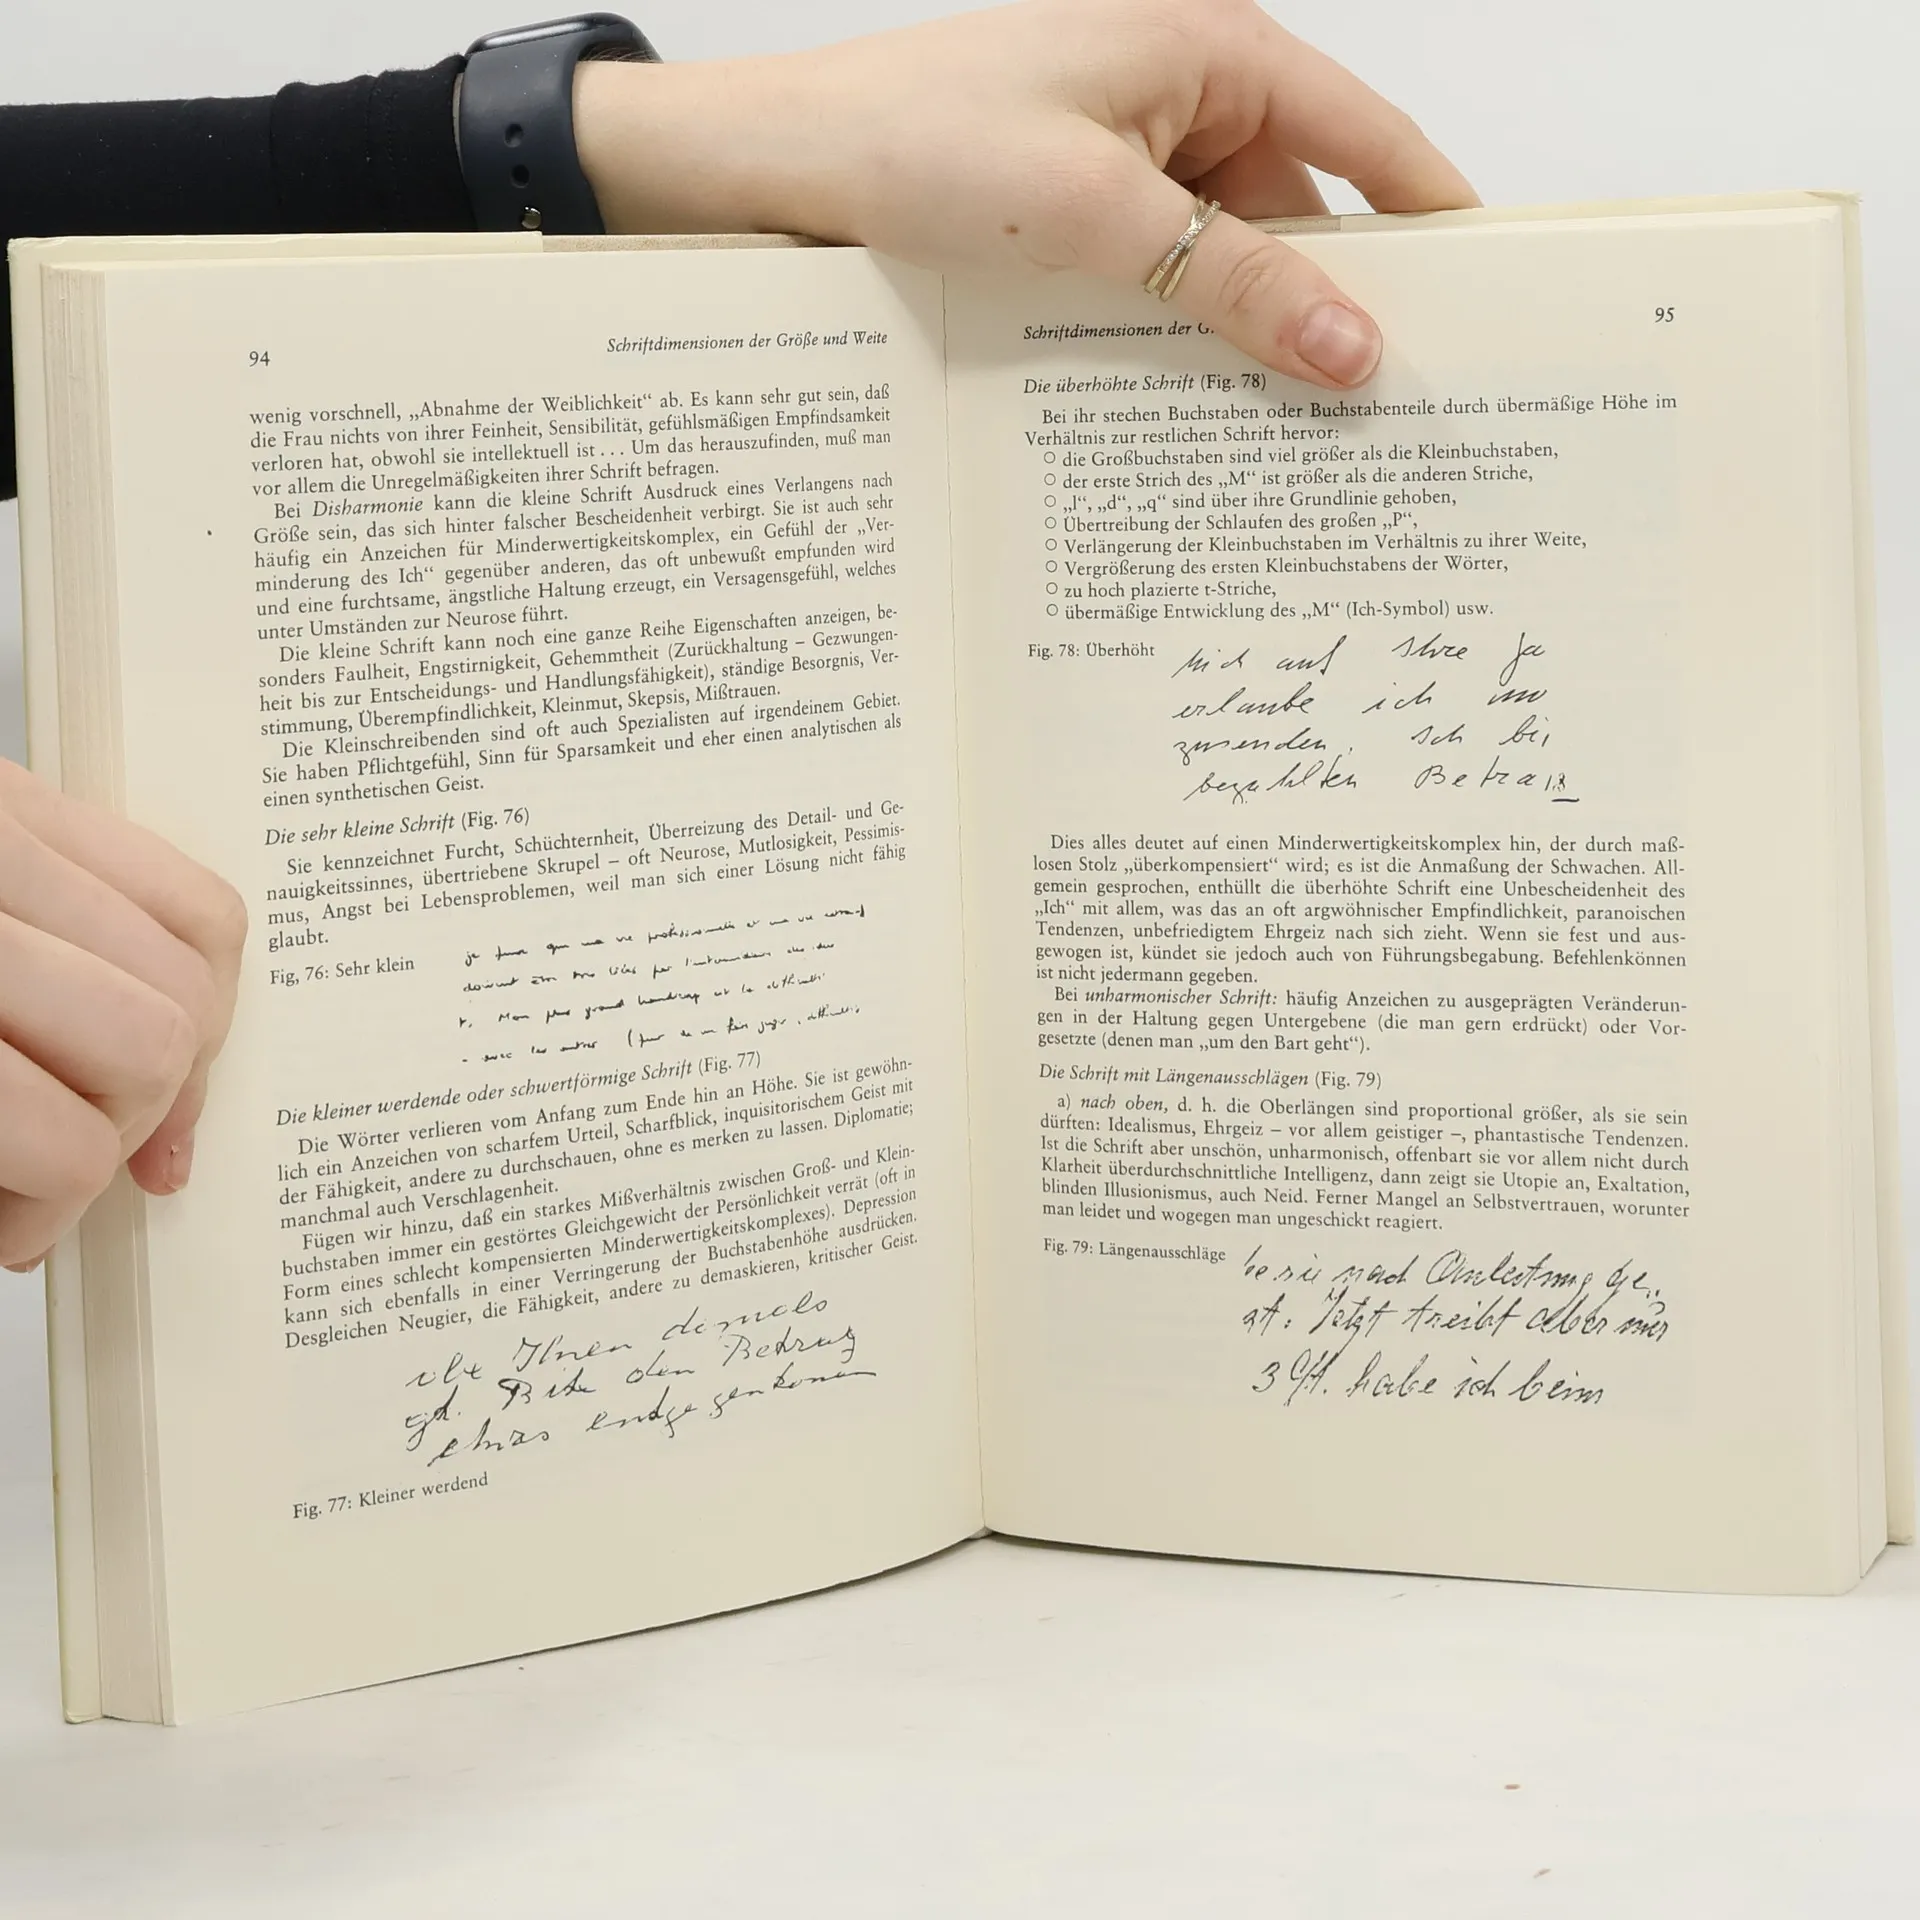 94
Schriftdimensionen der Größe und Weite
wenig vorschnell, „Abnahme der Weiblichkeit“ ab. Es kann sehr gut sein, daß
die Frau nichts von ihrer Feinheit, Sensibilität, gefühlsmäßigen Empfindsamkeit
verloren hat, obwohl sie intellektuell ist . . . Um das herauszufinden, muß man
vor allem die Unregelmäßigkeiten ihrer Schrift befragen.
Bei Disharmonie kann die kleine Schrift Ausdruck eines Verlangens nach
Größe sein, das sich hinter falscher Bescheidenheit verbirgt. Sie ist auch sehr
häufig ein Anzeichen für Minderwertigkeitskomplex, ein Gefühl der „Ver-
minderung des Ich“ gegenüber anderen, das oft unbewußt empfunden wird
und eine furchtsame, ängstliche Haltung erzeugt, ein Versagensgefühl, welches
unter Umständen zur Neurose führt.
Die kleine Schrift kann noch eine ganze Reihe Eigenschaften anzeigen, be-
sonders Faulheit, Engstirnigkeit, Gehemmtheit (Zurückhaltung – Gezwungen-
heit bis zur Entscheidungs- und Handlungsfähigkeit), ständige Besorgnis, Ver-
stimmung, Überempfindlichkeit, Kleinmut, Skepsis, Mißtrauen.
Die Kleinschreibenden sind oft auch Spezialisten auf irgendeinem Gebiet.
Sie haben Pflichtgefühl, Sinn für Sparsamkeit und eher einen analytischen als
einen synthetischen Geist.
Die sehr kleine Schrift (Fig. 76)
Sie kennzeichnet Furcht, Schüchternheit, Überreizung des Detail- und Ge-
nauigkeitssinnes, übertriebene Skrupel – oft Neurose, Mutlosigkeit, Pessimis-
mus, Angst bei Lebensproblemen, weil man sich einer Lösung nicht fähig
glaubt.
Fig, 76: Sehr klein
je que ma vie professionnelle et ma vie
doivent être très liées par l'intermédiaire des
Mon plus grand handicap est la
avec les autres
Die kleiner werdende oder schwertförmige Schrift (Fig. 77)
Die Wörter verlieren vom Anfang zum Ende hin an Höhe. Sie ist gewöhn-
lich ein Anzeichen von scharfem Urteil, Scharfblick, inquisitorischem Geist mit
der Fähigkeit, andere zu durchschauen, ohne es merken zu lassen. Diplomatie;
manchmal auch Verschlagenheit.
Fügen wir hinzu, daß ein starkes Mißverhältnis zwischen Groß- und Klein-
buchstaben immer ein gestörtes Gleichgewicht der Persönlichkeit verrät (oft in
Form eines schlecht kompensierten Minderwertigkeitskomplexes). Depression
kann sich ebenfalls in einer Verringerung der Buchstabenhöhe ausdrücken.
Desgleichen Neugier, die Fähigkeit, andere zu demaskieren, kritischer Geist.
Ihnen damals
den Betrag
etwas
Fig. 77: Kleiner werdend
Schriftdimensionen der G
95
Die überhöhte Schrift (Fig. 78)
Bei ihr stechen Buchstaben oder Buchstabenteile durch übermäßige Höhe im
Verhältnis zur restlichen Schrift hervor:
○ die Großbuchstaben sind viel größer als die Kleinbuchstaben,
○ der erste Strich des „M“ ist größer als die anderen Striche,
○ „l“, „d“, „q“ sind über ihre Grundlinie gehoben,
○ Übertreibung der Schlaufen des großen „P“,
○ Verlängerung der Kleinbuchstaben im Verhältnis zu ihrer Weite,
○ Vergrößerung des ersten Kleinbuchstabens der Wörter,
○ zu hoch plazierte t-Striche,
○ übermäßige Entwicklung des „M“ (Ich-Symbol) usw.
Fig. 78: Überhöht
auf Ihre
erlaube ich
zusenden. Ich
bezahlten
Dies alles deutet auf einen Minderwertigkeitskomplex hin, der durch maß-
losen Stolz „überkompensiert“ wird; es ist die Anmaßung der Schwachen. All-
gemein gesprochen, enthüllt die überhöhte Schrift eine Unbescheidenheit des
„Ich“ mit allem, was das an oft argwöhnischer Empfindlichkeit, paranoischen
Tendenzen, unbefriedigtem Ehrgeiz nach sich zieht. Wenn sie fest und aus-
gewogen ist, kündet sie jedoch auch von Führungsbegabung. Befehlenkönnen
ist nicht jedermann gegeben.
Bei unharmonischer Schrift: häufig Anzeichen zu ausgeprägten Veränderun-
gen in der Haltung gegen Untergebene (die man gern erdrückt) oder Vor-
gesetzte (denen man „um den Bart geht“).
Die Schrift mit Längenausschlägen (Fig. 79)
a) nach oben, d. h. die Oberlängen sind proportional größer, als sie sein
dürften: Idealismus, Ehrgeiz – vor allem geistiger –, phantastische Tendenzen.
Ist die Schrift aber unschön, unharmonisch, offenbart sie vor allem nicht durch
Klarheit überdurchschnittliche Intelligenz, dann zeigt sie Utopie an, Exaltation,
blinden Illusionismus, auch Neid. Ferner Mangel an Selbstvertrauen, worunter
man leidet und wogegen man ungeschickt reagiert.
Fig. 79: Längenausschläge
be sie nach Anleitung ge
Jetzt treibt aber
habe ich beim